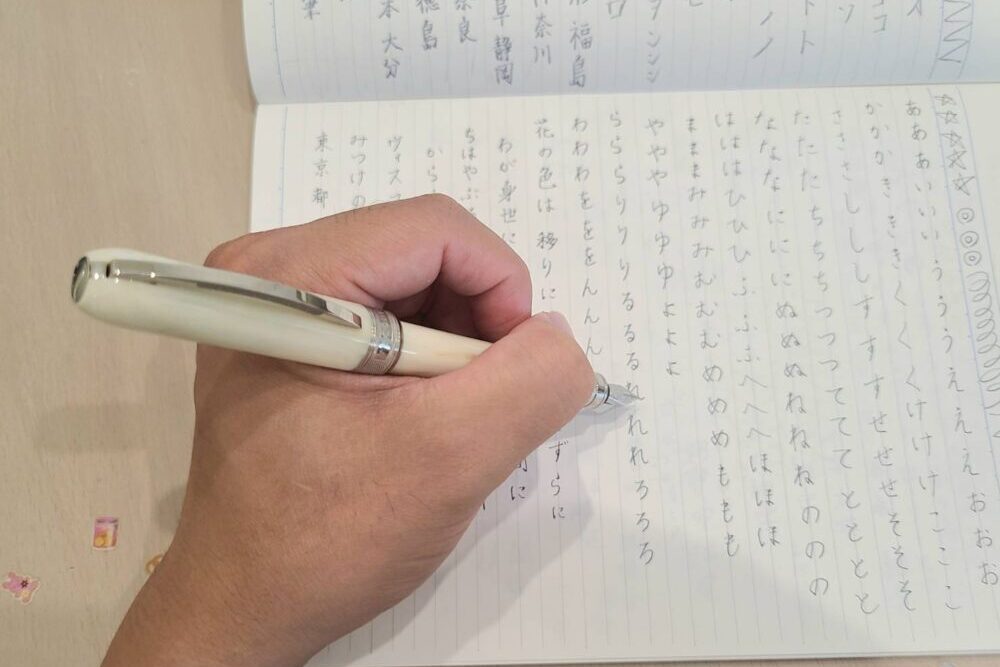 あああいいいうううえええおおお
かかかきききくくくけけけこここ
さささしししすすすせせせそそそ
たたたちちちつつつてててととと
なななにににぬぬぬねねねののの
はははひひひふふふへへへほほほ
まままみみみむむむめめめももも
やややゆゆゆよよよ
らららりりりるるるれれれろろろ
わわわをををんんん
花の色は移りに
ずらに
わが身世に
に
ちはやぶ
から
ヴィス
みつけの
東京都
ココ
ソ
トト
ノノ
ンンン
福島
奈川
静岡
奈良
徳島
大分